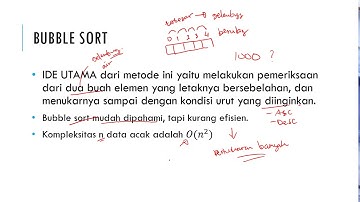 BUBBLE SORT
0 1 3 3 4
1000 ?
• IDE UTAMA dari metode ini yaitu melakukan pemeriksaan
dari dua buah elemen yang letaknya bersebelahan, dan
menukarnya sampai dengan kondisi urut yang diinginkan.
- ASC
- DESC
• Bubble sort mudah dipahami, tapi kurang efisien.
• Kompleksitas n data acak adalah O(n²)